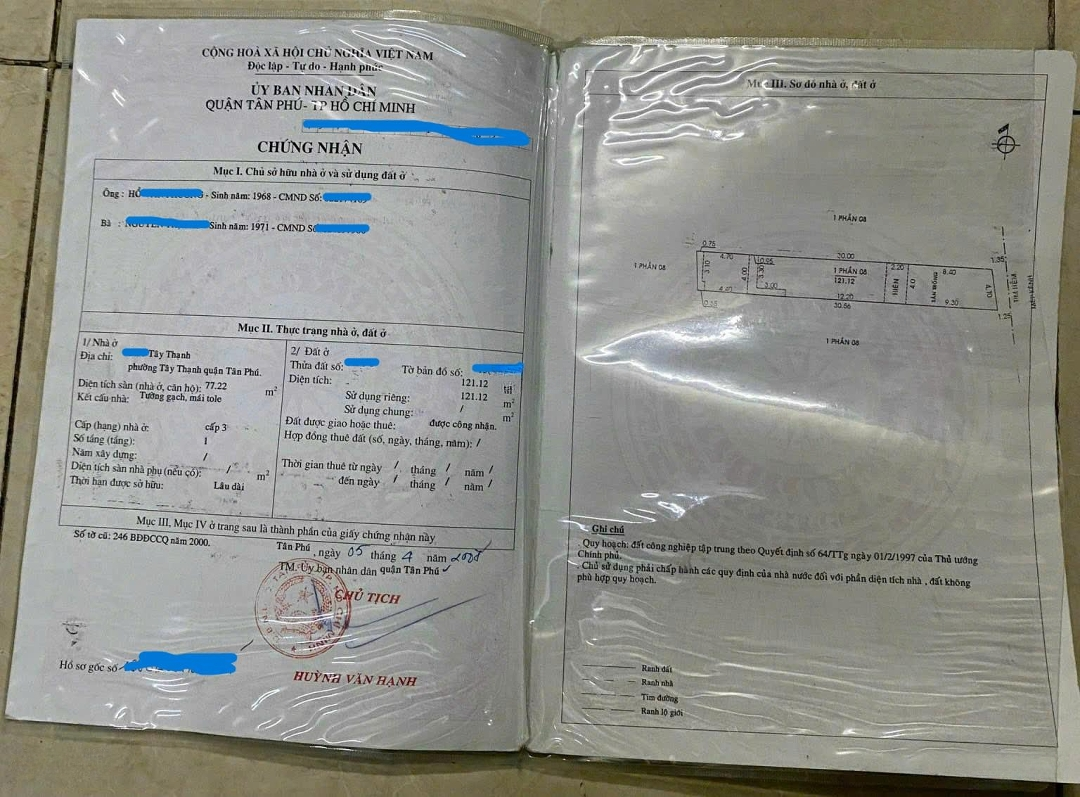 CỘNG HOÀ XÃ HỘI CHỦ NGHĨA VIỆT NAM
Độc lập - Tự do - Hạnh phúc
ỦY BAN NHÂN DÂN
QUẬN TÂN PHÚ- TP HỒ CHÍ MINH
CHỨNG NHẬN
Mục I. Chủ sở hữu nhà ở và sử dụng đất ở
Ông : HỒ - Sinh năm: 1968 - CMND Số:
Bà : Sinh năm: 1971 - CMND Số
Mục II. Thực trạng nhà ở, đất ở
1/ Nhà ở
Địa chỉ: Tây Thạnh
phường Tây Thạnh quận Tân Phú.
Diện tích sàn (nhà ở, căn hộ): 77.22 m²
Kết cấu nhà: Tường gạch, mái tole
Cấp (hạng) nhà ở: cấp 3
Số tầng (tầng): 1
Năm xây dựng: /
Diện tích sàn nhà phụ (nếu có): / m²
Thời hạn được sở hữu: Lâu dài
2/ Đất ở
Thửa đất số: Tờ bản đồ số:
Diện tích: 121.12 m²
Sử dụng riêng: 121.12 m²
Sử dụng chung: / m²
Đất được giao hoặc thuê: được công nhận.
Hợp đồng thuê đất (số, ngày, tháng, năm): /
Thời gian thuê từ ngày / tháng / năm /
đến ngày / tháng / năm /
Mục III, Mục IV ở trang sau là thành phần của giấy chứng nhận này
Số tờ cũ: 246 BĐĐCCQ năm 2000.
Tân Phú , ngày 05 tháng 4 năm
TM. Ủy ban nhân dân quận Tân Phú
CHỦ TỊCH
HUỲNH VĂN HẠNH
Hồ sơ gốc số
Mục III. Sơ đồ nhà ở, đất ở
1 PHẦN 08
1 PHẦN 08
0.75
4.70
30.00
1.35
3.10
4.00
10.95
3.30
3.00
1 PHẦN 08
121.12
2.20
HIÊN
4.0
SÂN TRỐNG
8.40
9.30
4.10
12.20
30.66
1.25
1 PHẦN 08
Ghi chú
. Quy hoạch: đất công nghiệp tập trung theo Quyết định số 64/TTg ngày 01/2/1997 của Thủ tướng
Chính phủ.
. Chủ sử dụng phải chấp hành các quy định của nhà nước đối với phần diện tích nhà , đất không
phù hợp quy hoạch.
Ranh đất
Ranh nhà
Tim đường
Ranh lộ giới